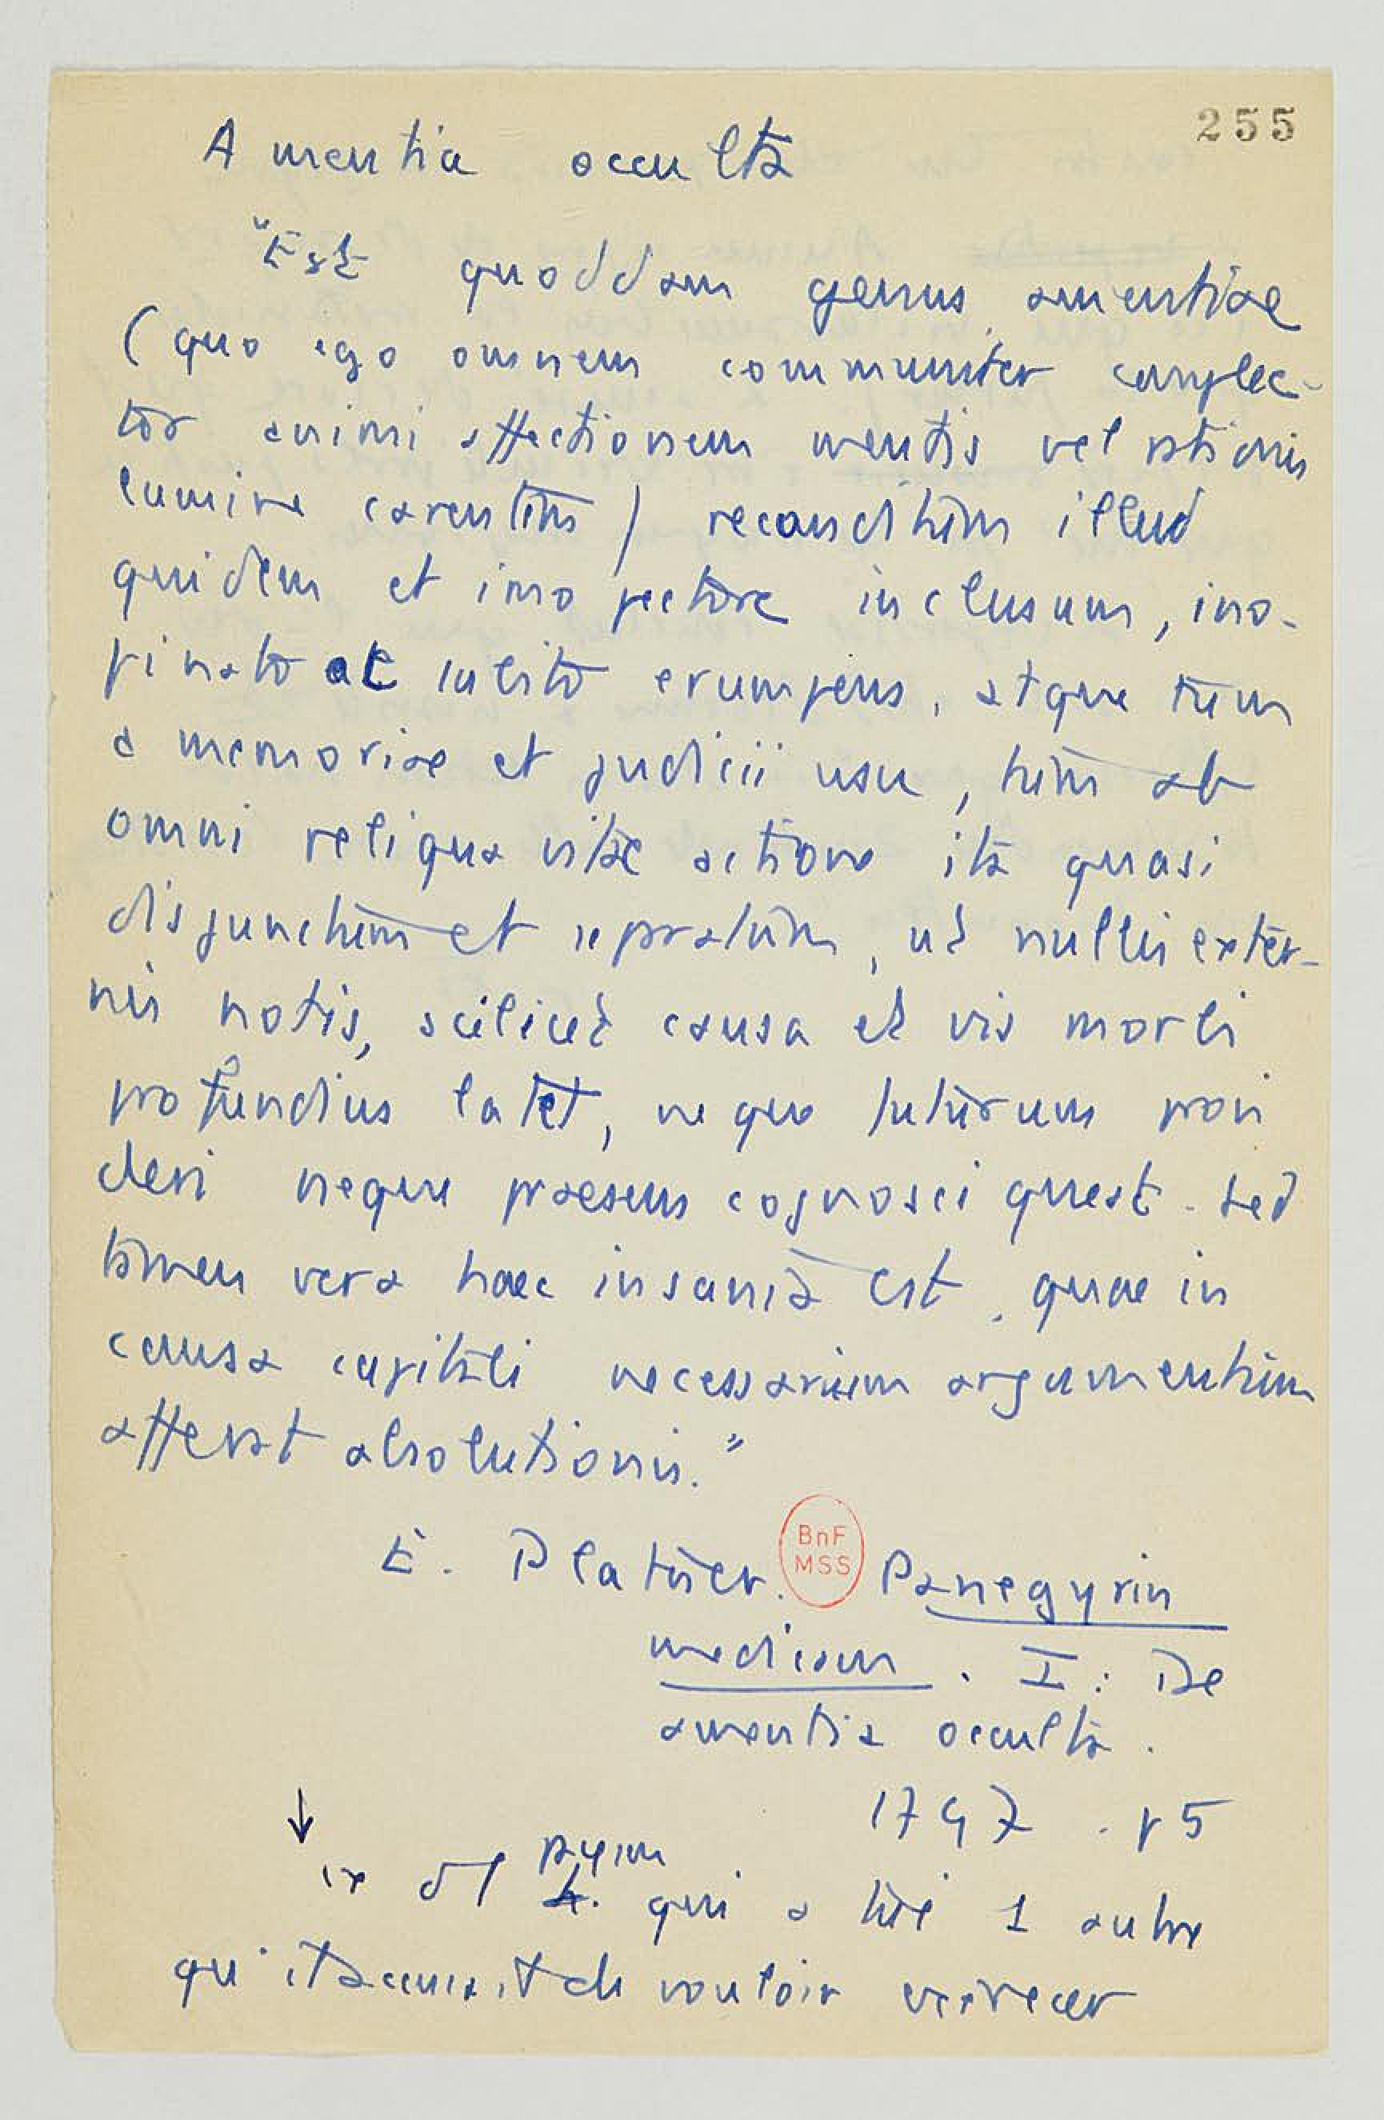 255
Amentia occulta
"Est quoddam genus amentiae
(quo ego omnem communiter complec-
tor animi affectionem mentis vel rationis
lumine carentem) reconditum illud
quidem et imo pectore inclusum, ino-
pinato ac subito erumpens, atque tum
a memoriae et judicii usu, tum ab
omni reliqua vitae actione ita quasi
disjunctum et separatum, ut nullis exter-
nis notis, scilicet causa et vis morbi
profundius latet, neque futurum provi
deri neque praesens cognosci queat. Sed
tamen vera haec insania est, quae in
causa capitali necessarium argumentum
afferat absolutionis."
E. Platner. Panegyrin
BnF
MSS
medicam. I: De
amentia occulta.
1797. p 5
↓
ex d'1 qui a tué 1 autre
qu'il accusait de vouloir